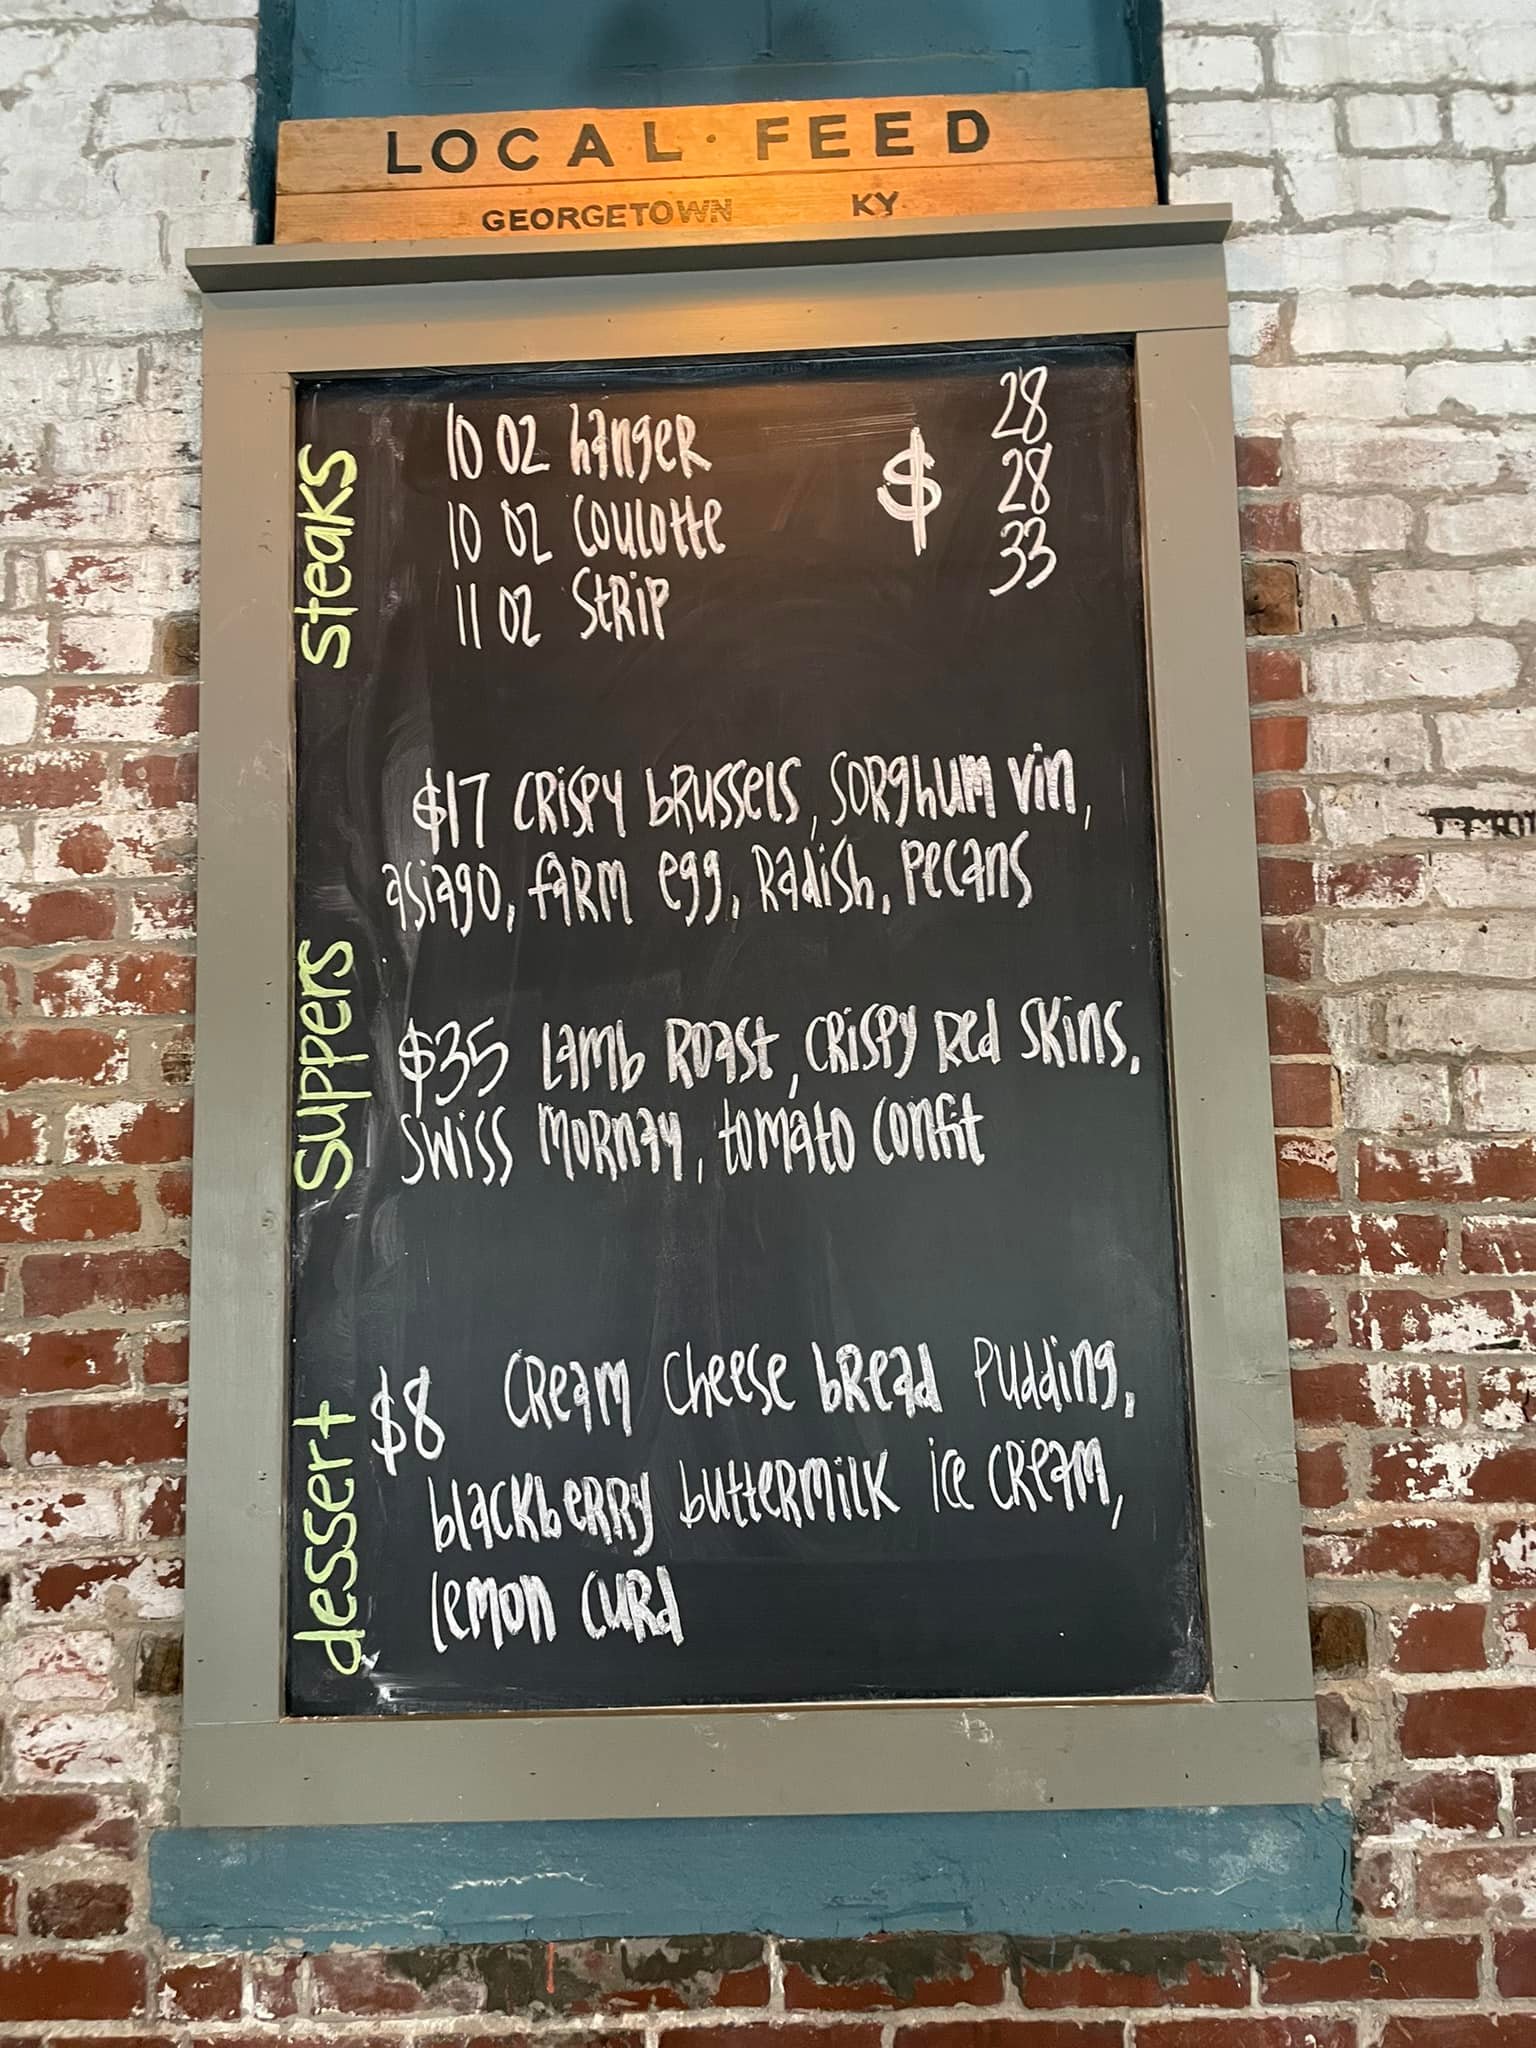 LOCAL · FEED
GEORGETOWN KY
steaks
10 oz hanger $ 28
10 oz coulotte 28
11 oz strip 33
suppers
$17 crispy brussels, sorghum vin,
asiago, farm egg, radish, pecans
$35 lamb roast, crispy red skins,
swiss mornay, tomato confit
dessert
$8 cream cheese bread pudding,
blackberry buttermilk ice cream,
lemon curd